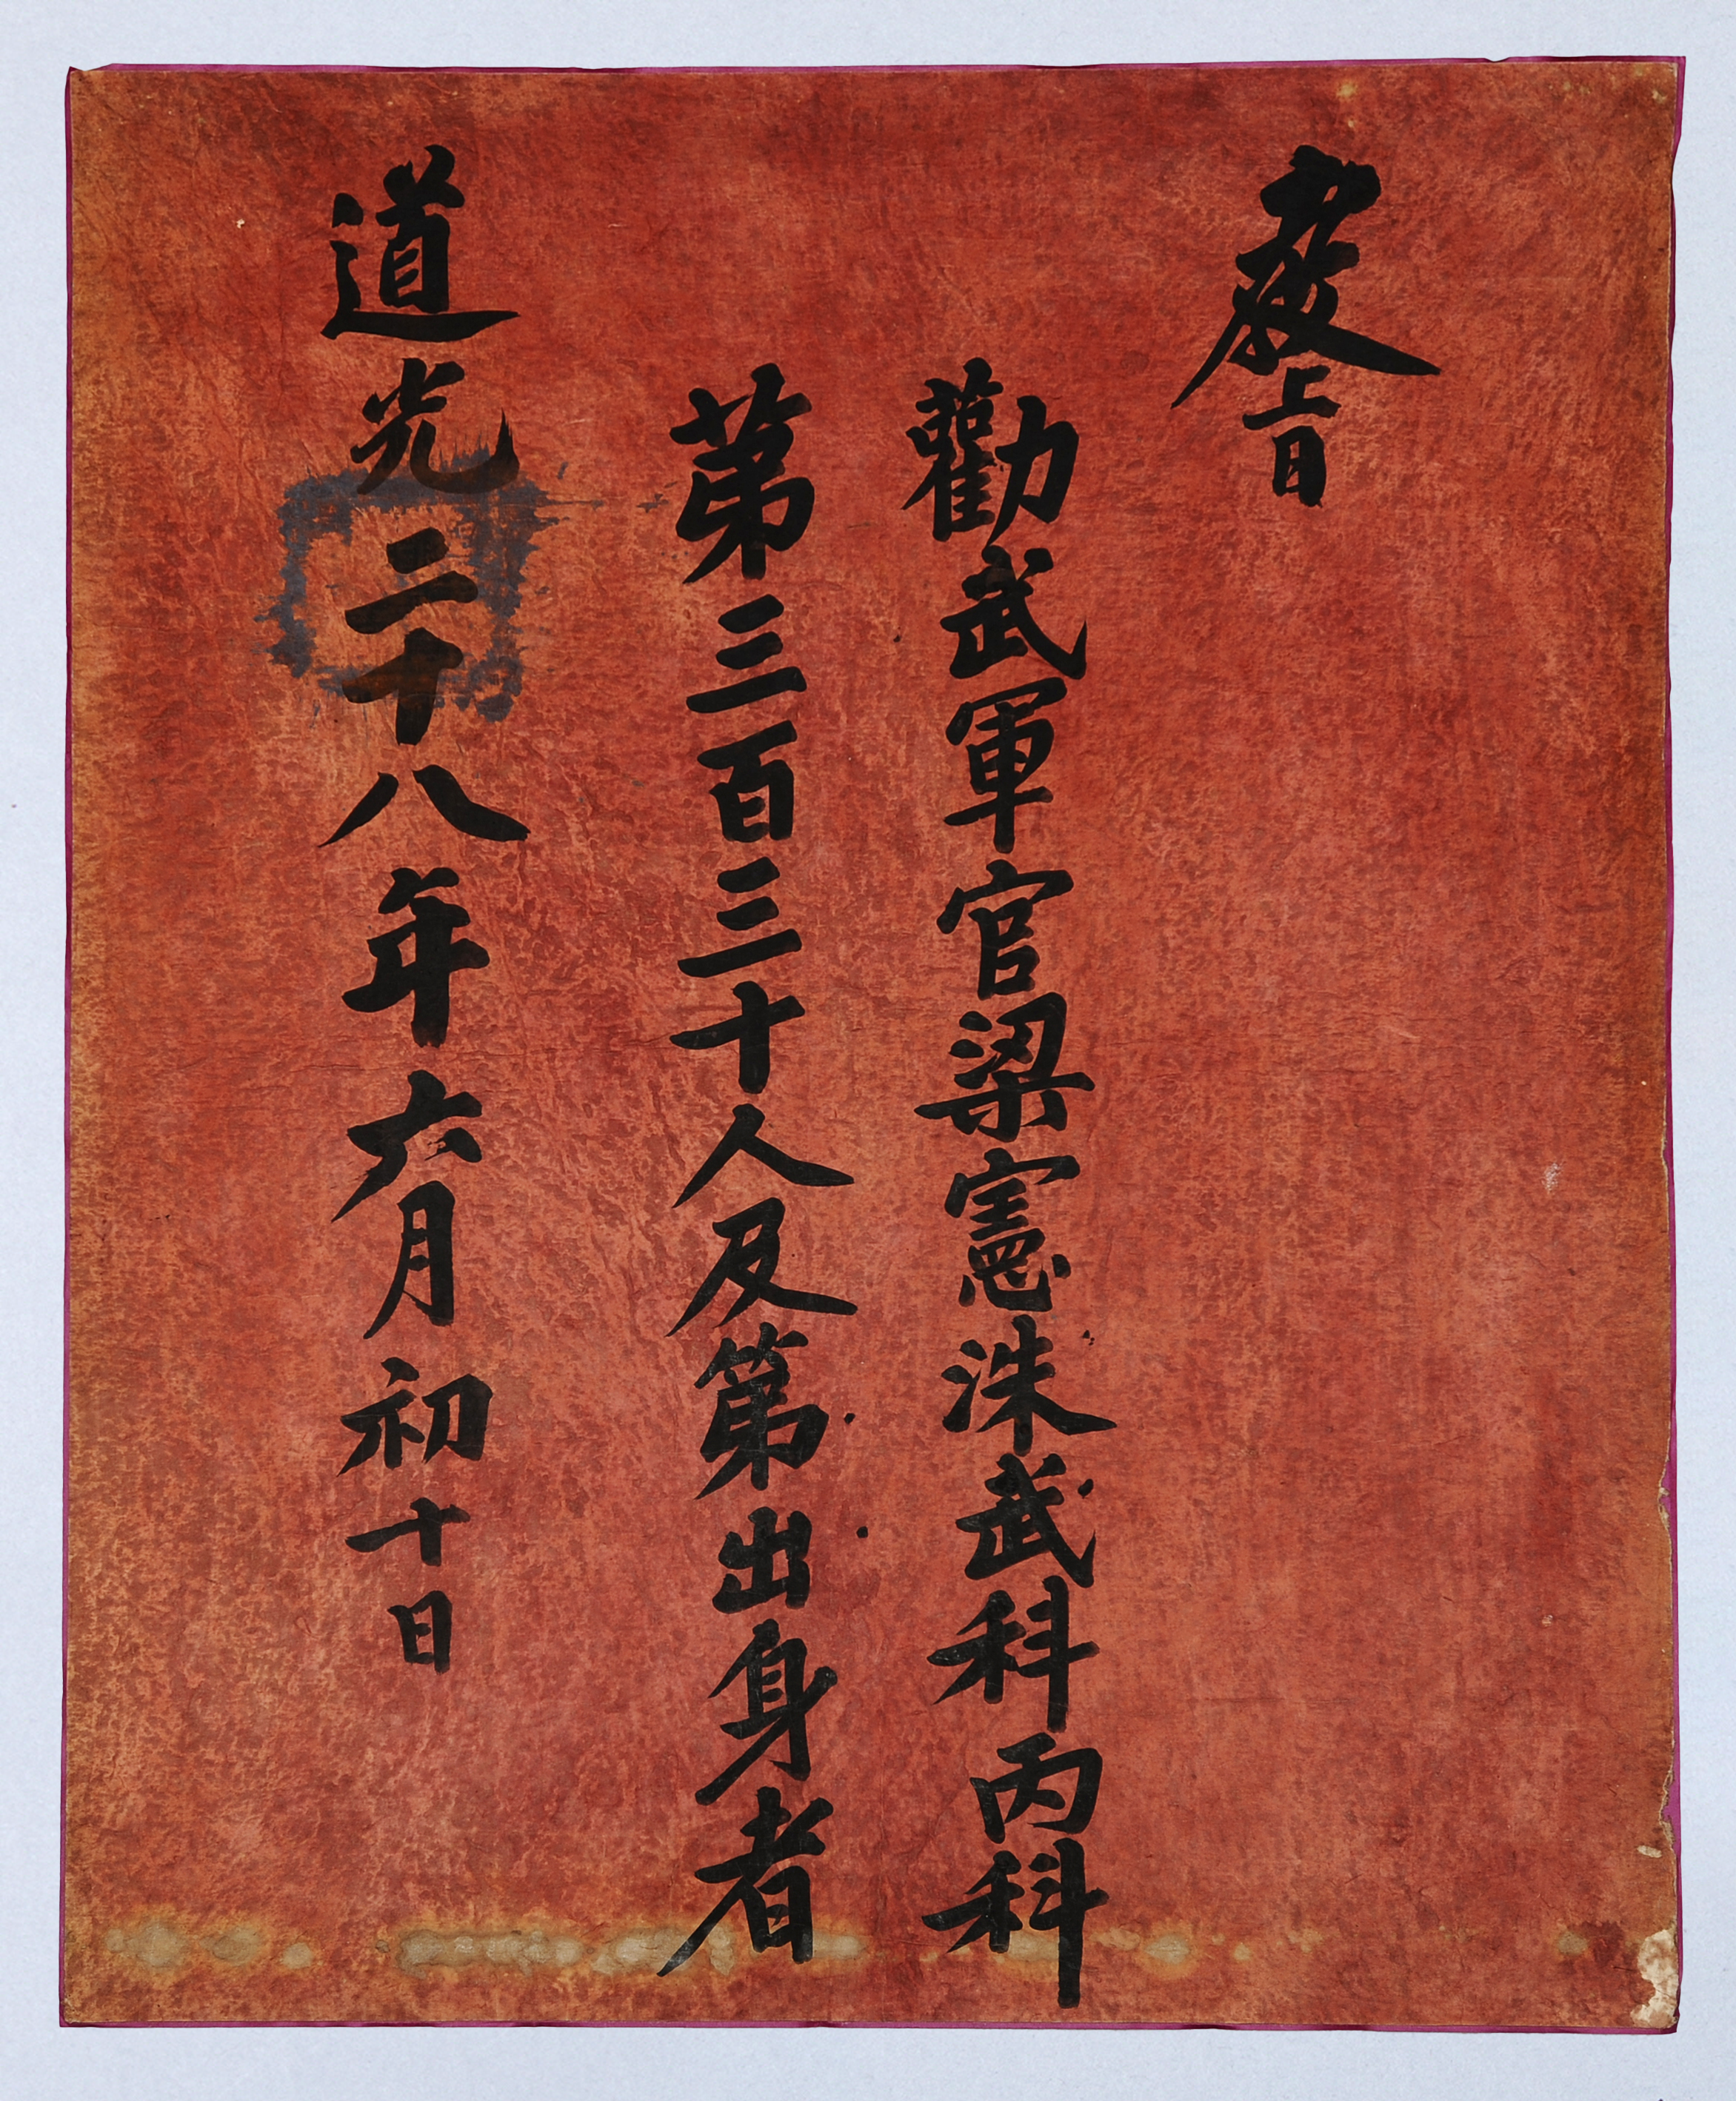 敎旨
勸武軍官梁憲洙武科丙科
苐三百三十人及第出身者
道光二十八年六月初十日